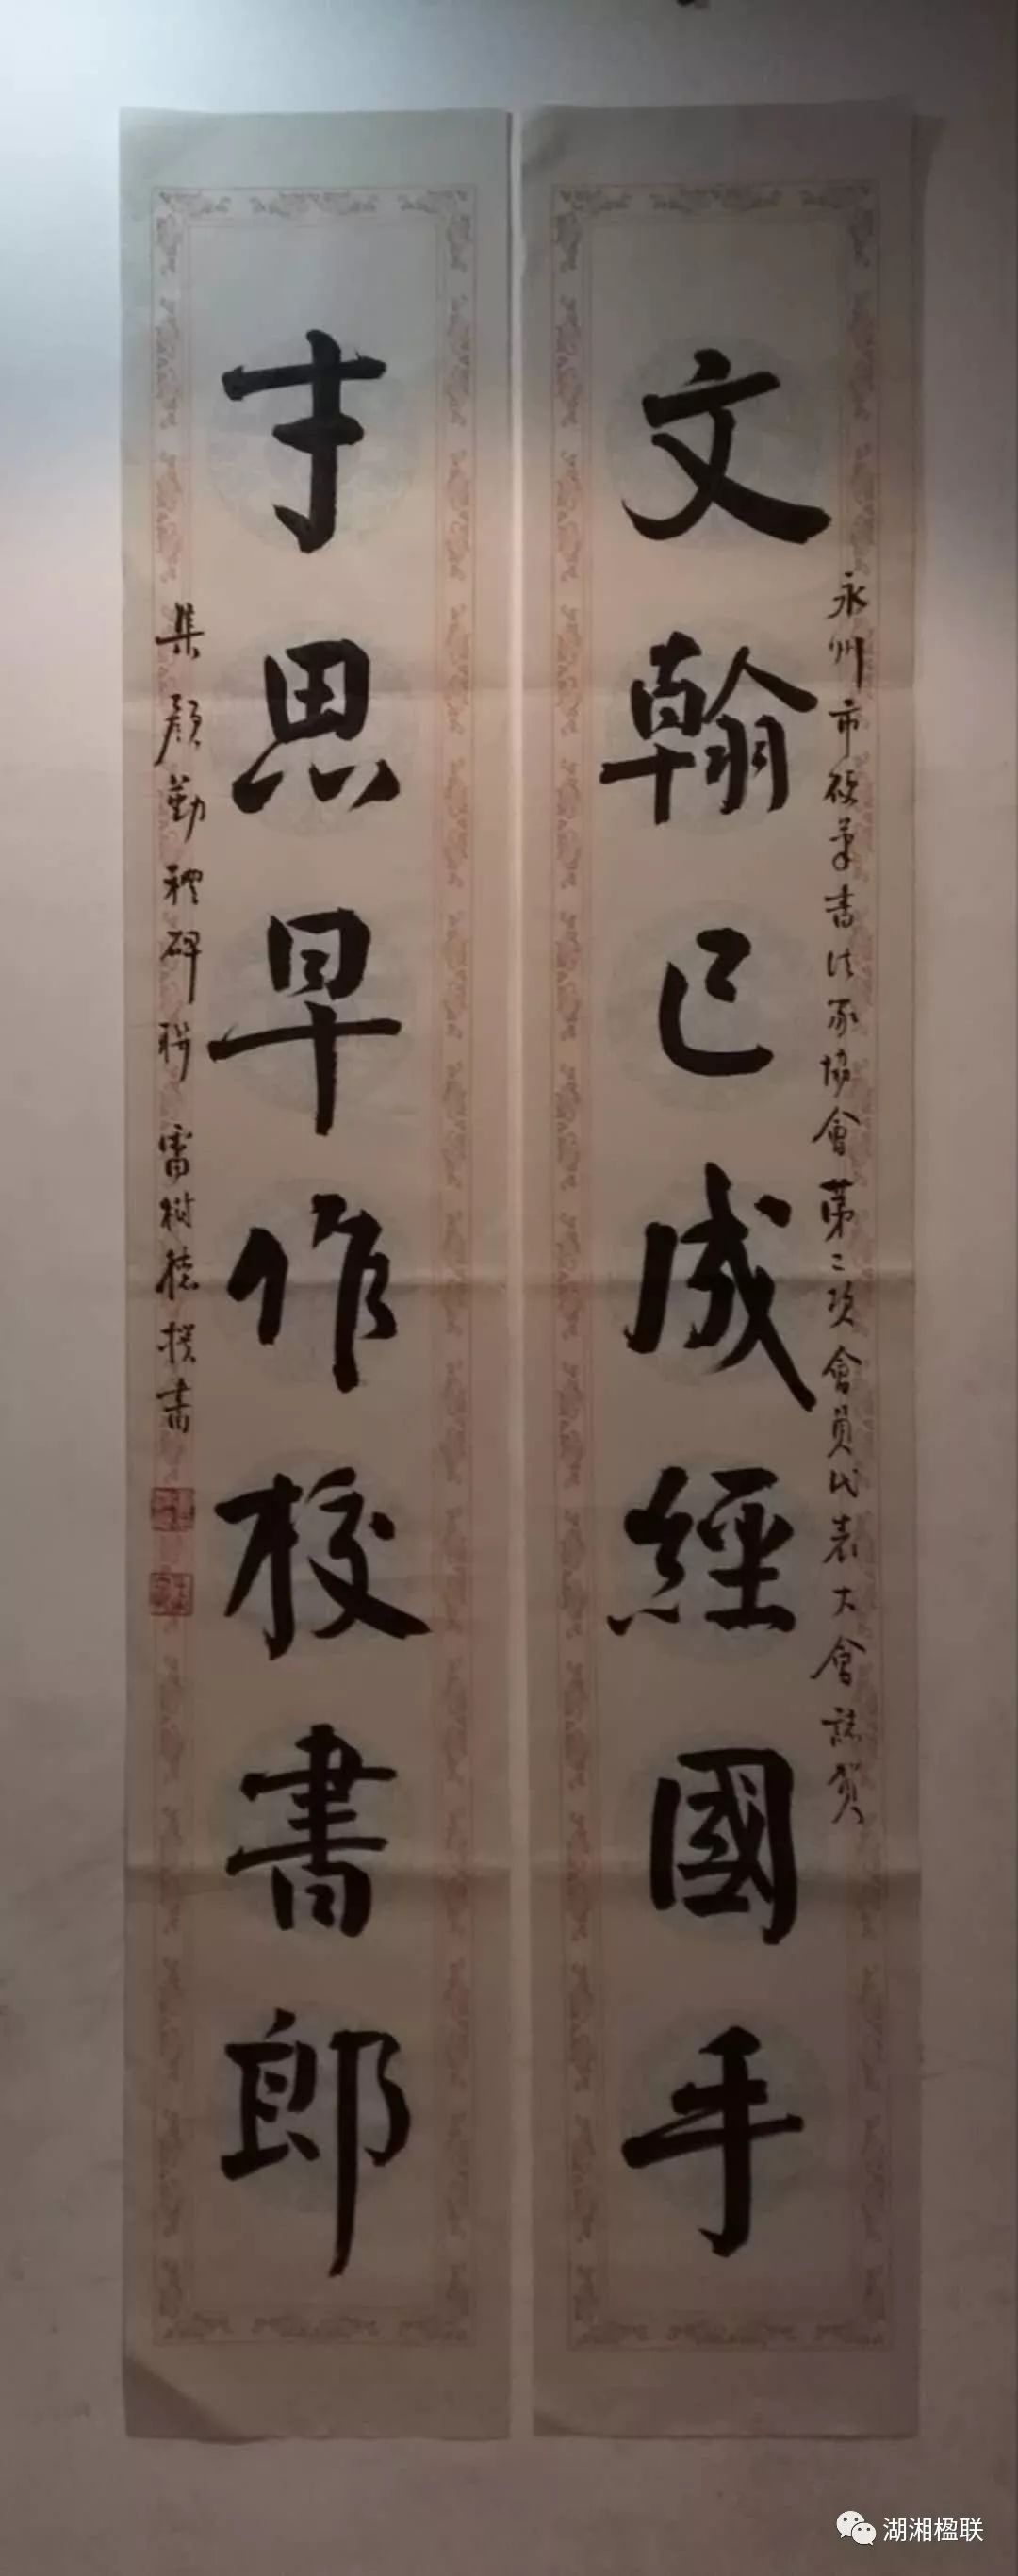 永州市硬筆書法家協會第二次會員代表大會誌賀
文翰已成經國手
才思早作校書郎
集顏勤禮碑聯 雷樹德撰書
湖湘楹联